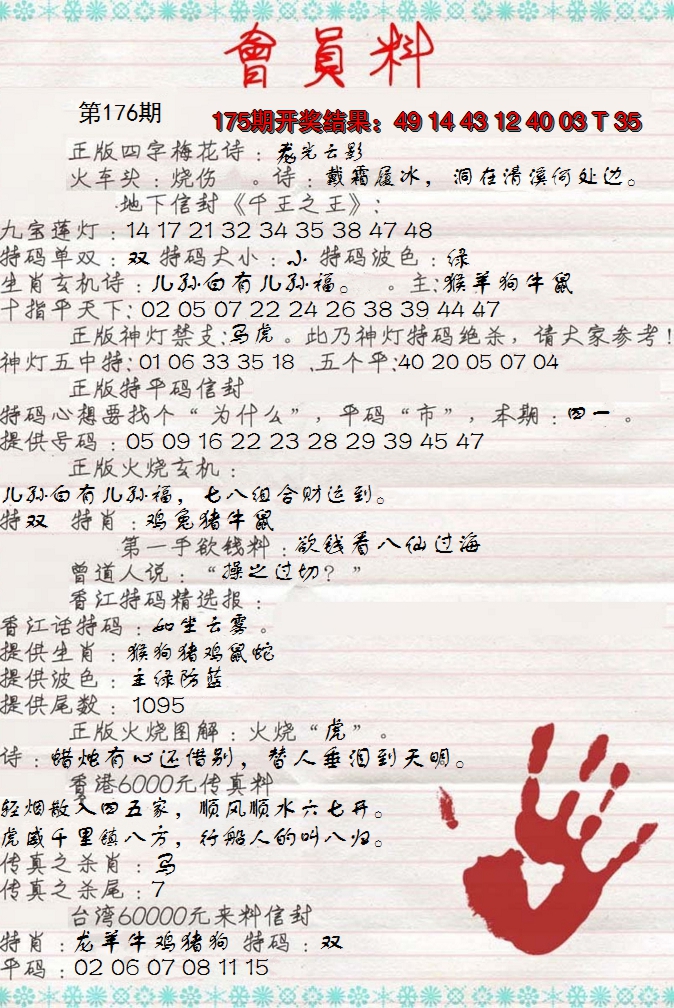 會員料
第176期
175期开奖结果：49 14 43 12 40 03 T 35
正版四字梅花诗：龙光云影
火车头：烧伤 。诗：戴霜履冰，洞在清溪何处边。
地下信封《千王之王》：
九宝莲灯：14 17 21 32 34 35 38 47 48
特码单双：双 特码大小：小 特码波色：绿
生肖玄机诗：儿孙自有儿孙福。 。主：猴羊狗牛鼠
十指平天下：02 05 07 22 24 26 38 39 44 47
正版神灯禁支：马虎。此乃神灯特码绝杀，请大家参考！
神灯五中特：01 06 33 35 18 、五个平：40 20 05 07 04
正版特平码信封
特码心想要找个“为什么”，平码“市”，本期：四一 。
提供号码：05 09 16 22 23 28 29 39 45 47
正版火烧玄机：
儿孙自有儿孙福，七八组合财运到。
特双 特肖：鸡兔猪牛鼠
第一手欲钱料：欲钱看八仙过海
曾道人说：“操之过切？”
香江特码精选报：
香江话特码：如坐云雾。
提供生肖：猴狗猪鸡鼠蛇
提供波色：主绿防蓝
提供尾数：1095
正版火烧图解：火烧“虎”。
诗：蜡烛有心还借别，替人垂泪到天明。
香港6000元传真料
轻烟散入四五家，顺风顺水六七开。
虎威千里镇八方，行船人的叫八归。
传真之杀肖：马
传真之杀尾：7
台湾60000元来料信封
特肖：龙羊牛鸡猪狗 特码：双
平码：02 06 07 08 11 15